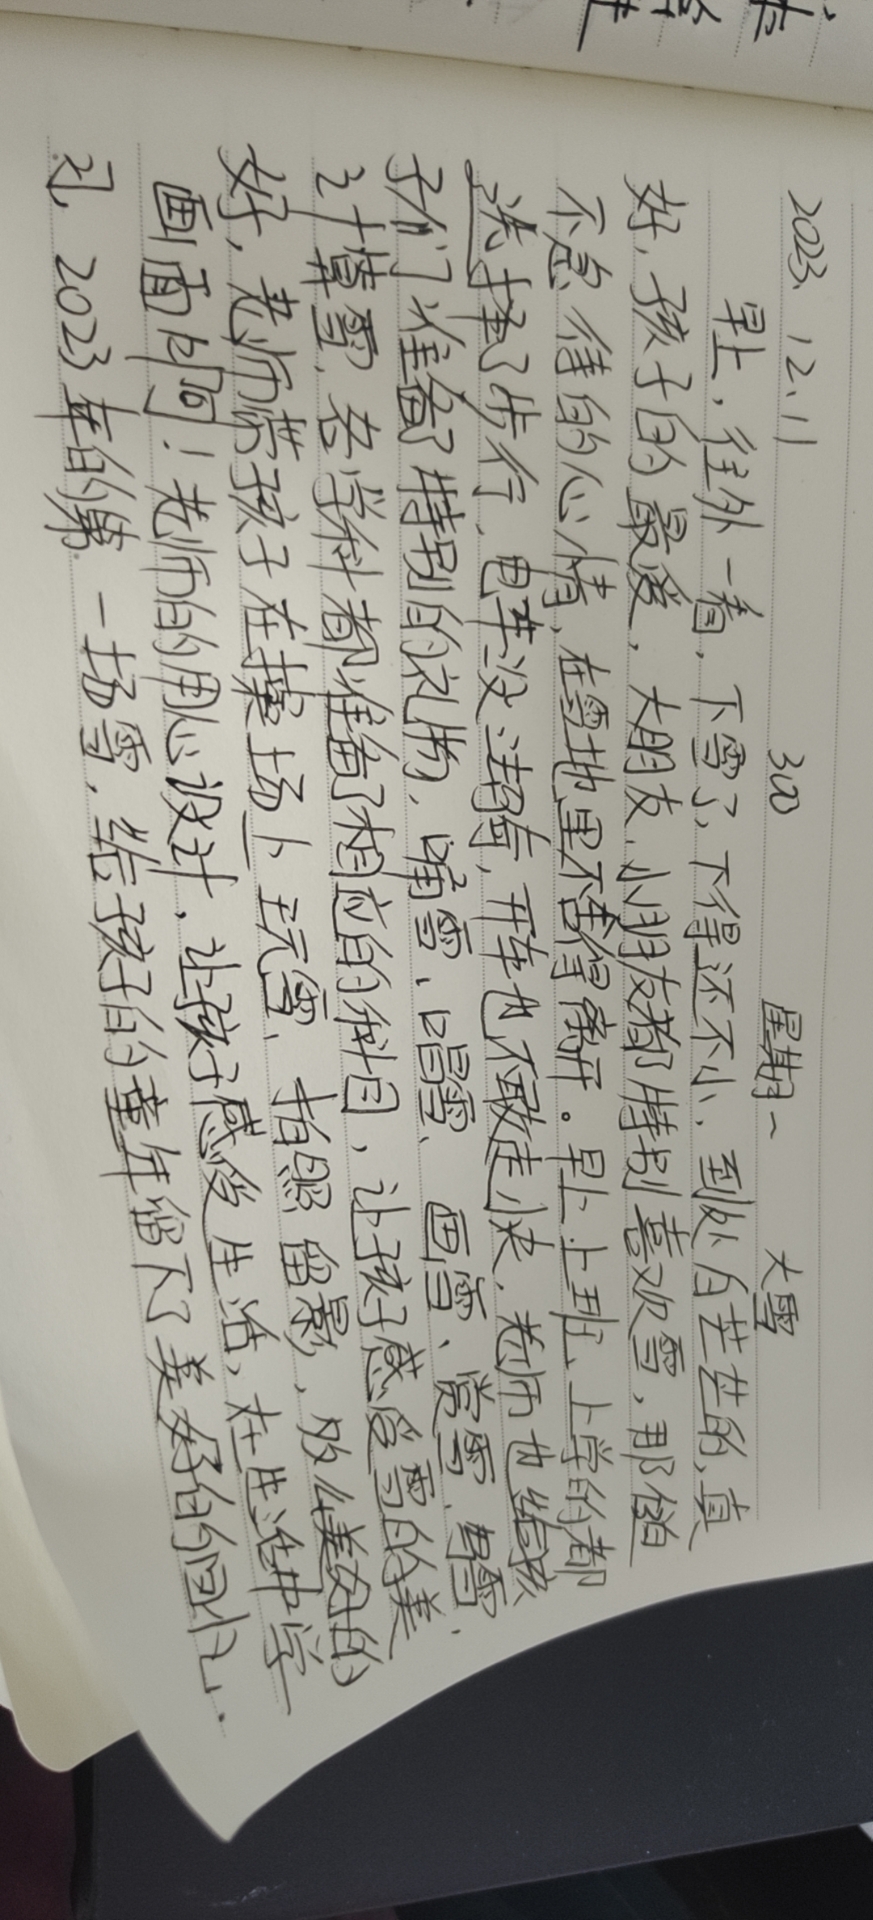 2023. 12. 11 300 星期一 大雪
早上，往外一看，下雪了，下得还不小，到处白茫茫的，真
好，孩子的最爱，大朋友、小朋友都特别喜欢雪，那迫
不急待的心情，在雪地里不舍得离开。早上上班、上学的都
选择了步行，电车没法骑，开车也不敢走快，老师也给孩
子们准备了特别的礼物，诵雪、唱雪、画雪、赏雪、
计算雪，各学科都准备了相应的科目，让孩子感受雪的美
好，老师带孩子在操场上玩雪，拍照留影，多么美好的
画面啊！老师的用心设计，让孩子感受生活，在生活中学
习，2023年的第一场雪，给孩子的童年留下了美好的回忆.